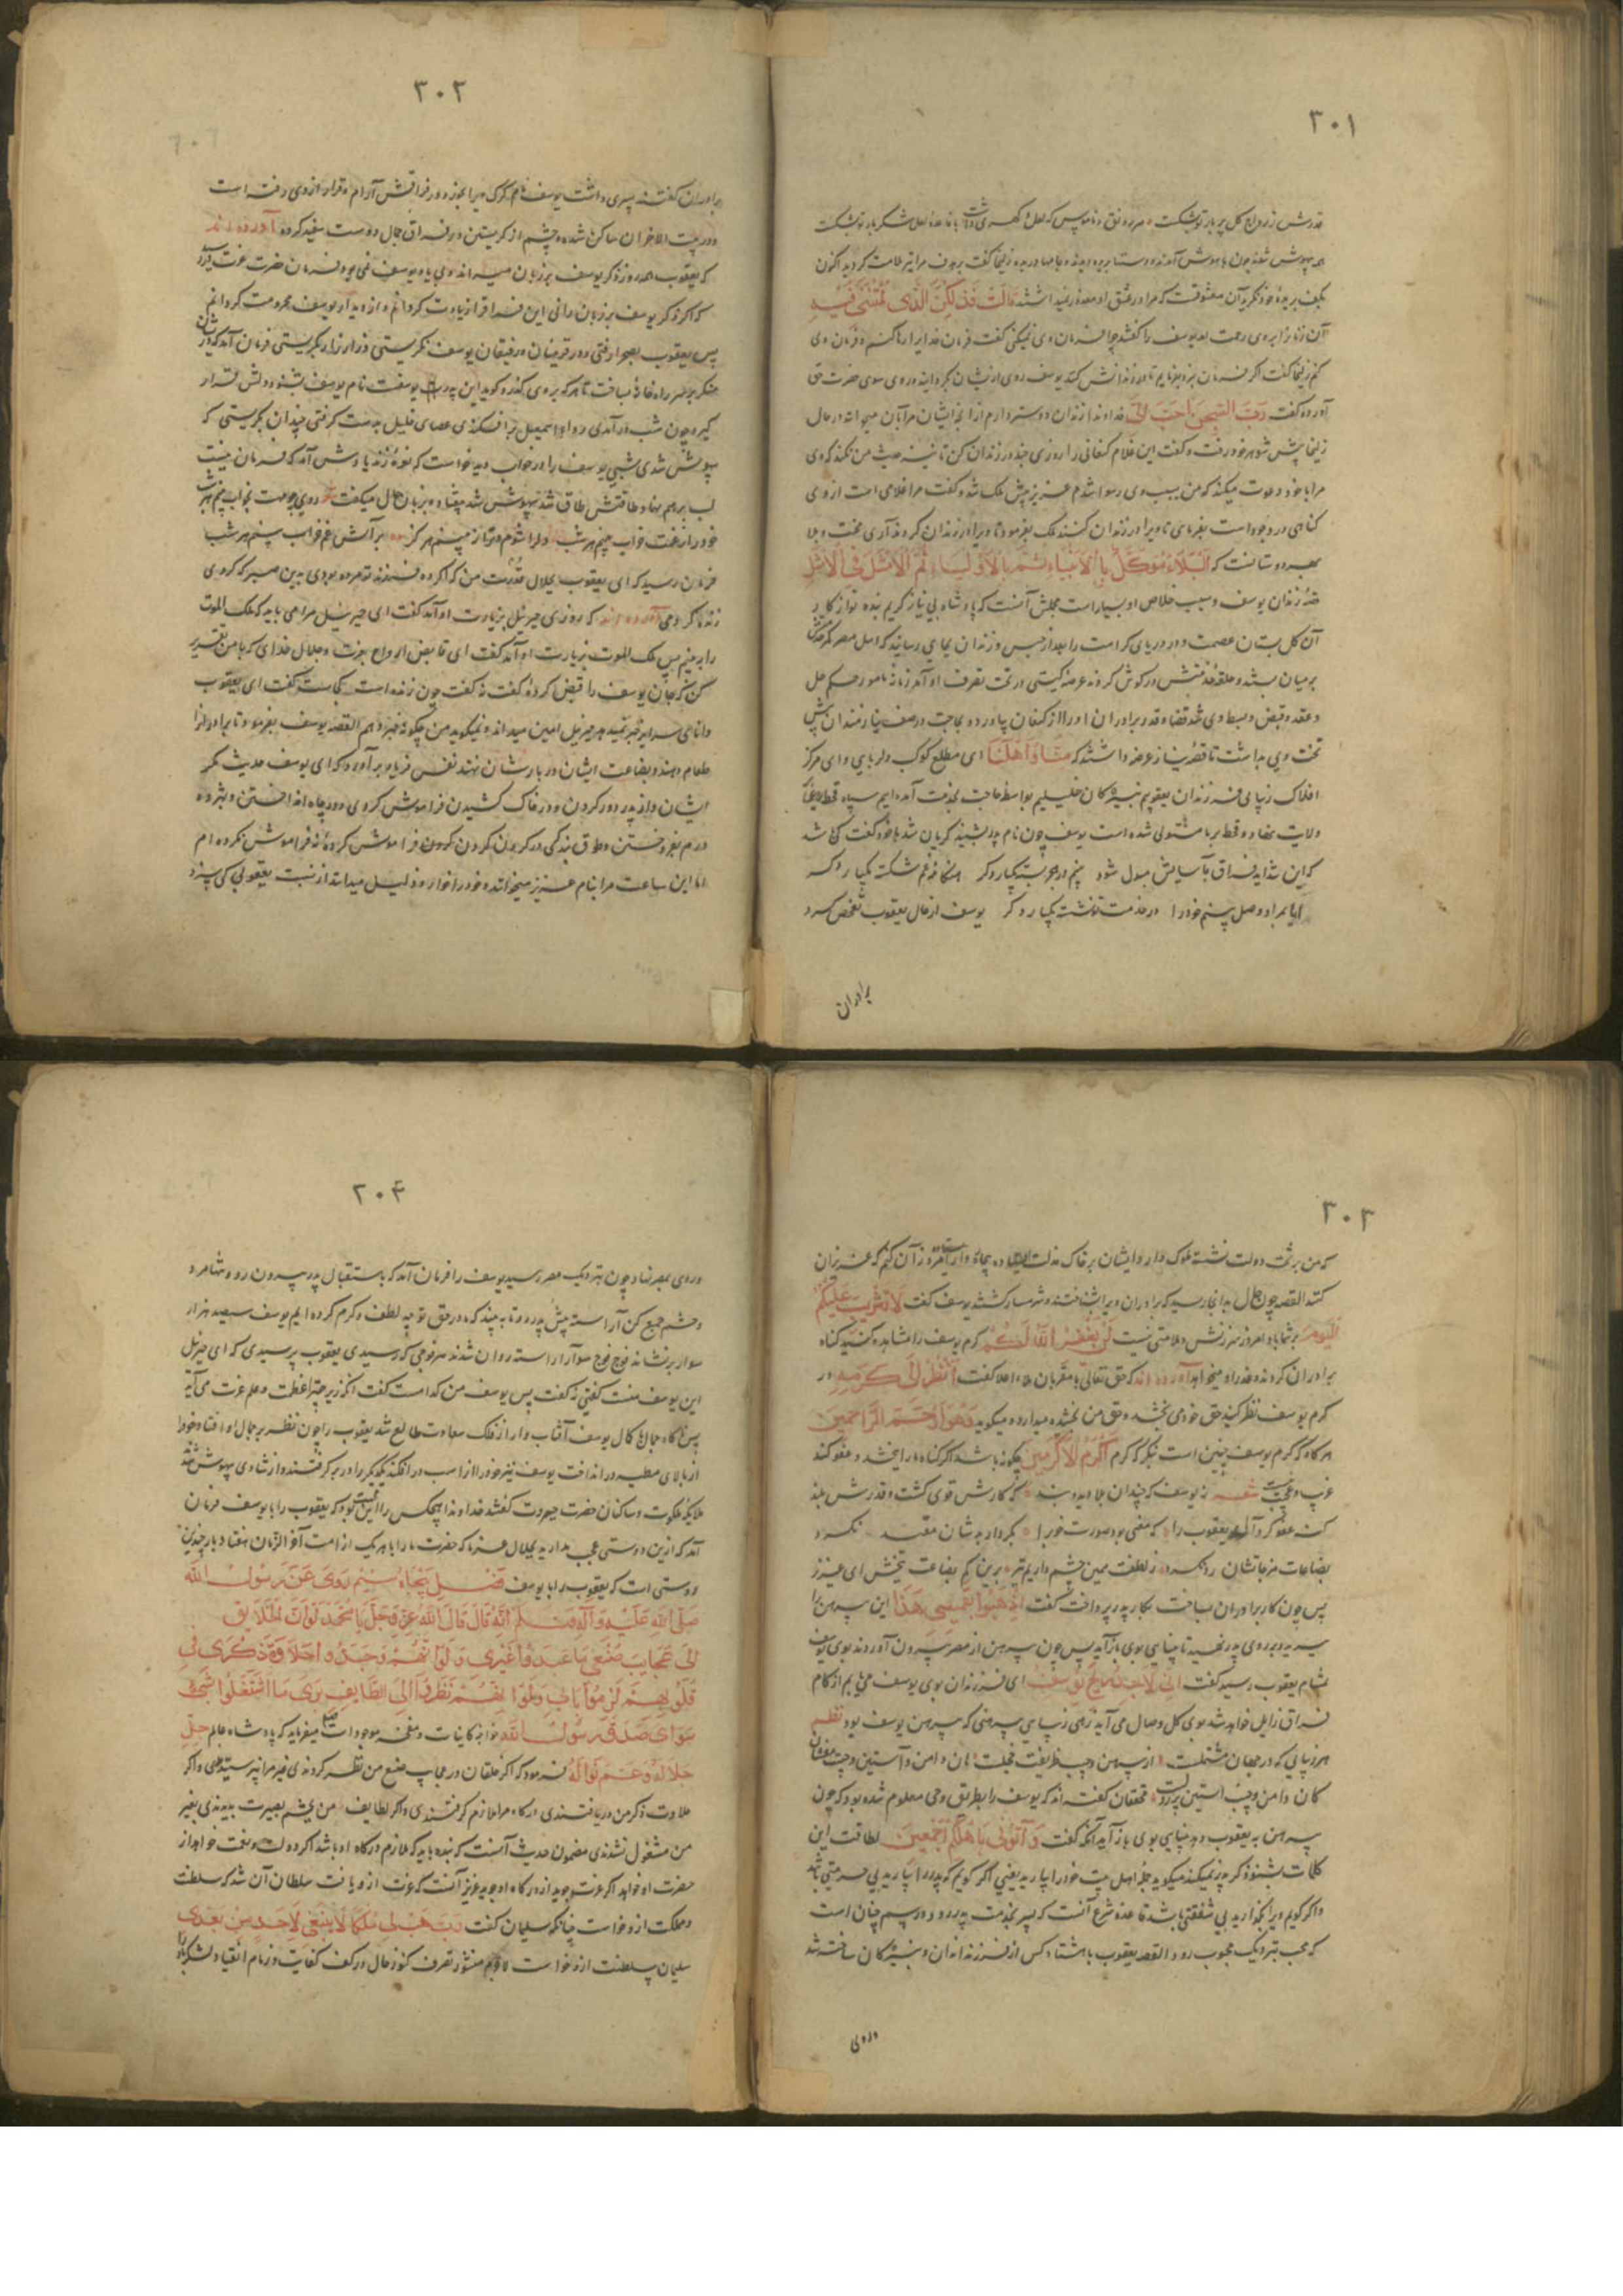 ۳۰۱
قدرش ز رواج کل پر بار تو بشکست
همه بیهوش شدند چون باهوش آمدند دستها بریده دیدند و جامها دریده زلیخا گفت برحرف مرا تیر ملامت کردید اکنون
قالت فذلکن الذی لمتننی فیه
آن زنان را بروی رحمت آمد یوسف را گفتند چرا فرمان وی نمیکنی گفت فرمان خدایرا رها کنم و فرمان وی
کنم زلیخا گفت اگر فرمان نبرد بفرمایم تا در زندانش کنند یوسف روی از ایشان بگردانید و روی سوی حضرت حق
آورد و گفت رب السجن احب الی خداوندا زندان دوستر دارم از آنچه ایشان مرا بآن میخوانند در حال
زلیخا پیش شوهر خود رفت و گفت این غلام کنعانی را روزی چند در زندان کن تا نسبت خبث من نکند که وی
مرا با خود دعوت میکند که من بسبب وی رسوا شدم عزیز پیش ملک شد و گفت مرا غلامی است از وی
گناهی در وجود آمده است بفرمای تا ویرا در زندان کنند ملک بفرمود تا ویرا در زندان کردند آری محنت و بلا
بهره دوستانست که البلاء موکل بالانبیاء ثم بالاولیاء ثم الامثل فالامثل
قصه زندان یوسف و سبب خلاص او بسیار است مجملش آنست که پادشاه بی نیاز کریم بنده نواز کار
آن گل بستان عصمت و در دریای کرامت را بعد از حبس و زندان بجای رسانید که اهل مصر کمر خدمت
بر میان بستند و حلقه خدمتش در گوش کردند عرصه گیتی در تحت تصرف او آمد زمانه مامور حکم حل
و عقد و قبض و بسط وی شد قضا و قدر برادران او را از کنعان بیاورد و بحاجت در صف نیازمندان پیش
تخت وی بداشت تا قصه نیاز عرضه داشتند که مسنا و اهلنا ای مطلع کوکب دلربایی و ای مرکز
افلاک زیبایی فرزندان یعقوبیم نبیرگان خلیلیم بواسطه حاجت بخدمت آمده ایم سپاه قحط
ولایت نهاده و قحط بر ما مستولی شده است یوسف چون نام پدر بشنید گریان شد با خود گفت کی شد
که این شداید فراق بآسایش مبدل شود
آیا بمراد وصل بینم خود را در خدمت تو نشسته یکبار دگر یوسف از حال یعقوب تفحص کرد
برادران
۳۰۲
برادران گفتند پسری داشت یوسف نام گرگ ویرا بخورد و در فراقش آرام و قرار از وی رفته است
و در بیت الاحزان ساکن شده و چشم از گریستن در فراق جمال دوست سفید کرده آورده اند
که یعقوب همه روز ذکر یوسف بر زبان میراندی و بی یاد یوسف نمی بود فرمان حضرت عزت
که اگر ذکر یوسف بر زبان رانی این فراق را زیادت گردانم و از دیدار یوسف محرومت گردانم
پس یعقوب بصحرا رفتی و در قرینان و رفیقان یوسف نگریستی و زار زار بگریستی فرمان آمد که
منگر بر سر راه خانه ساخت تا هر که بر وی گذرد گوید این پدر یوسف است نام یوسف بشنود و دلش قرار
گیرد چون شب در آمدی ردای اسمعیل بر افکندی عصای خلیل بدست گرفتی چندان بگریستی که
بیهوش شدی شبی یوسف را در خواب دید خواست که نعره زند یادش آمد که فرمان نیست
لب بر هم نهاد و طاقتش طاق شد بیهوش شد و بیفتاد و بزبان حال میگفت
فرمان رسید که ای یعقوب بجلال قدرت من که اگر ده فرزند تو مرده بودی بدین صبر که کردی
زنده کردمی آورده اند که روزی جبرئیل بزیارت او آمد گفت ای جبرئیل مرا می باید که ملک الموت
را ببینم پس ملک الموت بزیارت او آمد گفت ای قابض ارواح بعزت و جلال خدای که با من تقریر
کن که جان یوسف را قبض کرده گفت نه گفت چون زنده است کجاست گفت ای یعقوب
القصه یوسف بفرمود تا برادران را
طعام دهند و بضاعت ایشان در بارشان نهند نفس فریاد بر آورد که ای یوسف حدیث مکر
ایشان و از پدر دور کردن و در خاک کشیدن فراموش کردی و در چاه انداختن و بهژده
درم بفروختن و طوق بندگی در گردن کردن فراموش کرده نه فراموش نکرده ام
اما این ساعت مرا بنام عزیز میخوانند و خود را خوار و ذلیل میدانند از نسبت یعقوبی کی سزد
۳۰۳
که من بر تخت دولت نشسته ملوک وار و ایشان بر خاک مذلت آن کنم که عزیزان
کنند القصه چون حال بدانجا رسید که برادران ویرا بشناختند و شرمسار گشتند یوسف گفت لا تثریب علیکم
الیوم بر شما باد امروز سرزنش و ملامتی نیست لن یغفر الله لکم کرم یوسف را مشاهده کنید گناه
برادران کردند و عذر او میخواهد آورده اند که حق تعالی با مقربان ملاء اعلا گفت انظر الی کرمه در
کرم یوسف نظر کنید حق خود می بخشد و حق من بخشیده میدارد و میگوید و هو ارحم الراحمین
هر گاه که کرم یوسف چنین است بنگر که کرم اکرم الاکرمین چگونه باشد اگر گناه ما را ببخشد و عفو کند
غریب و عجب نیست شعر نه یوسف که چندان بلا دید و بند که کارش قوی گشت و قدرش بلند
گنه عفو کرد آل یعقوب را که معنی بود صورت خوب را بکردار بدشان مقید نکرد
بضاعات مزجاتشان رد نکرد ز لطفت همین چشم داریم نیز برین کم بضاعت ببخش ای عزیز
پس چون کار برادران بساخت بکار پدر پرداخت گفت اذهبوا بقمیصی هذا این پیرهن را
ببرید و بر روی پدر نهید تا بینایی وی باز آید پس چون پیرهن از مصر بیرون آوردند بوی یوسف
بمشام یعقوب رسید گفت انی لاجد ریح یوسف ای فرزندان بوی یوسف می یابم از کام
فراق زایل خواهد شد بوی گل وصال می آید زهی زیبایی پیرهنی که پیرهن یوسف بود نظم
هر زیبایی که در جهان مشتملست از پیرهن و جیب ظریفت خجلست
کان دامن و جیب و آستین پر ز دلست محققان گفته اند که یوسف را بطریق وحی معلوم شده بود که چون
پیرهن به یعقوب دهد بینایی وی باز آید آنکه گفت و اتونی باهلکم اجمعین لطافت این
کلمات بشنو ذکر پدر نمیکند میگوید جمله اهل بیت خود را بیارید یعنی اگر گویم که پدر را بیارید بی حرمتی باشد
و اگر گویم ویرا بگذارید بی شفقتی باشد قاعده شرع آنست که پسر بخدمت پدر رود و رسم چنان است
که محب بنزدیک محبوب رود القصه یعقوب با هشتاد کس از فرزندان و نبیرگان ساخته شد
و روی
۳۰۴
و روی بمصر نهاد چون بنزدیک مصر رسید یوسف را فرمان آمد که باستقبال پدر بیرون رو و شاهد
و حشم جمع کن آراسته پیش پدر رو تا ببیند که ما در حق تو چه لطف و کرم کرده ایم یوسف سیصد هزار
سوار برنشاند فوج فوج سوار آراسته روان شدند هر فوجی که رسیدی یعقوب پرسیدی که ای جبرئیل
این یوسف منست گفتی نه گفت پس یوسف من کدام است گفت آنکه زیر چتر عظمت و علم عزت می آید
پس ناگاه جمال با کمال یوسف آفتاب وار از فلک سعادت طالع شد یعقوب را چون نظر بر جمال او افتاد خود را
از بالای مطیه در انداخت یوسف نیز خود را از اسب در افکند یکدیگر را در بر گرفتند و از شادی بیهوش شدند
ملایکه ملکوت و ساکنان حضرت جبروت گفتند خداوندا هیچکس را این محبت بود که یعقوب را با یوسف فرمان
آمد که ازین دوستی عجب مدارید بجلال عزت ما که حضرت ما را با هر یک از امت آخر الزمان هفتاد بار چندین
دوستی است که یعقوب را با یوسف فصل پنجاه سیم روی عن رسول الله
صلی الله علیه و آله و سلم انه قال قال الله عز و جل یا محمد لو ان الخلایق
الی عجایب صنعی ما عبدوا غیری و لو انهم وجدوا حلاوة ذکری فی
قلوبهم لزموا بابی و لو انهم نظروا الی لطایف بری ما اشتغلوا بشیء
سوای صدق رسول الله خواجه کاینات و مفخر موجودات میفرماید که پادشاه عالم جل
جلاله و عم نواله فرمود که اگر خلقان در عجایب صنع من نظر کردندی غیر مرا نپرستیدندی و اگر
حلاوت ذکر من دریافتندی درگاه مرا ملازم گرفتندی و اگر لطایف من بچشم بصیرت بدیدندی بغیر
من مشغول نشدندی مضمون حدیث آنست که بنده باید که ملازم درگاه او باشد اگر دولت و نعت خواهد از
حضرت او خواهد اگر عزت جوید از درگاه او جوید عزیز آنست که عزت ازو یافت سلطان آن شد که سلطنت
و مملکت ازو خواست چنانکه سلیمان گفت رب هب لی ملکا لا ینبغی لاحد من بعدی
سلیمان سلطنت ازو خواست لاجرم منشور تصرف کنوز حال در کف کفایت و زمام انقیاد لشکر